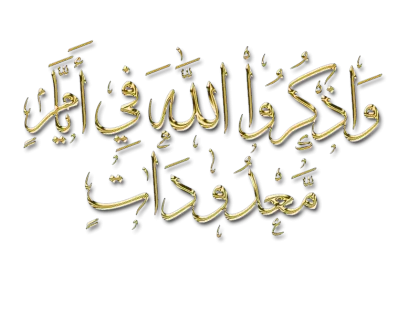 وَاذْكُرُوا اللَّهَ فِي أَيَّامٍ
مَّعْدُودَاتٍ